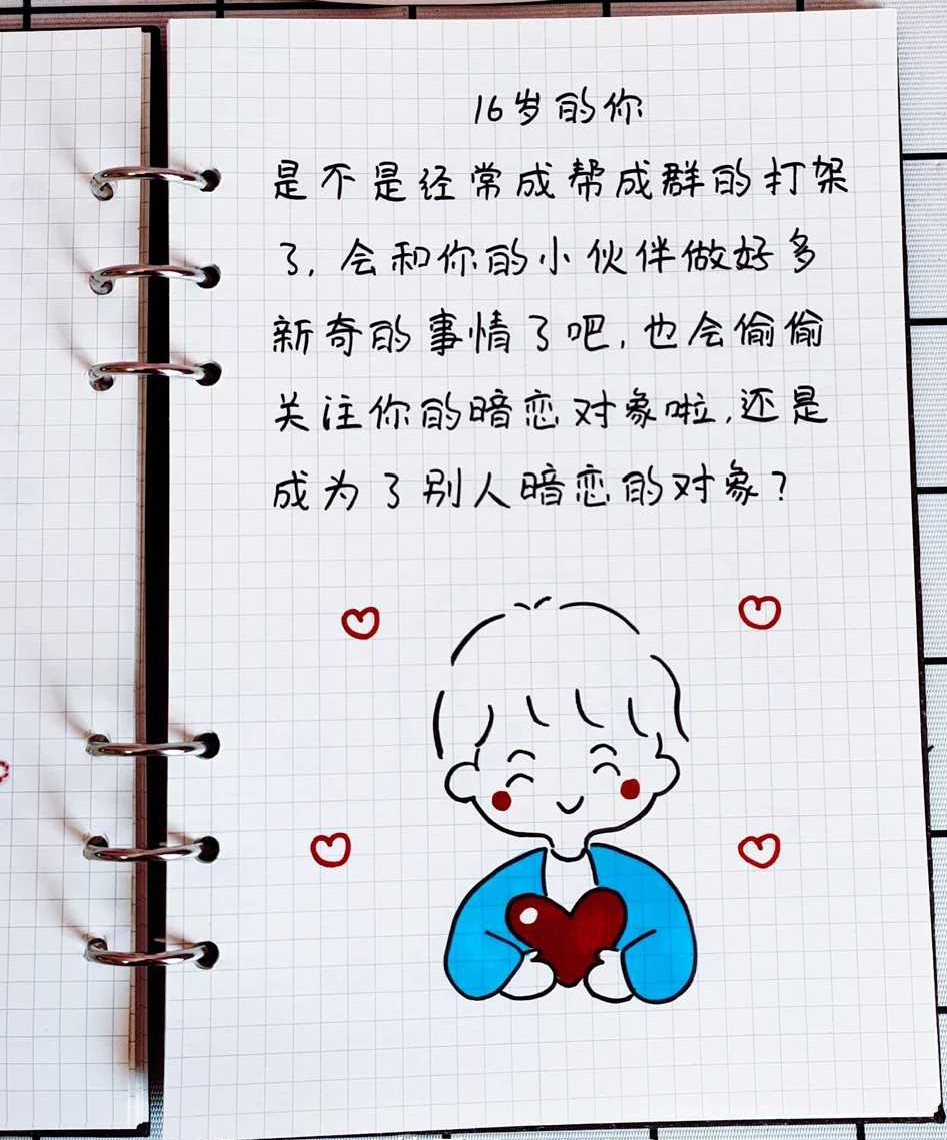 16岁的你
是不是经常成帮成群的打架
了，会和你的小伙伴做好多
新奇的事情了吧，也会偷偷
关注你的暗恋对象啦，还是
成为了别人暗恋的对象？